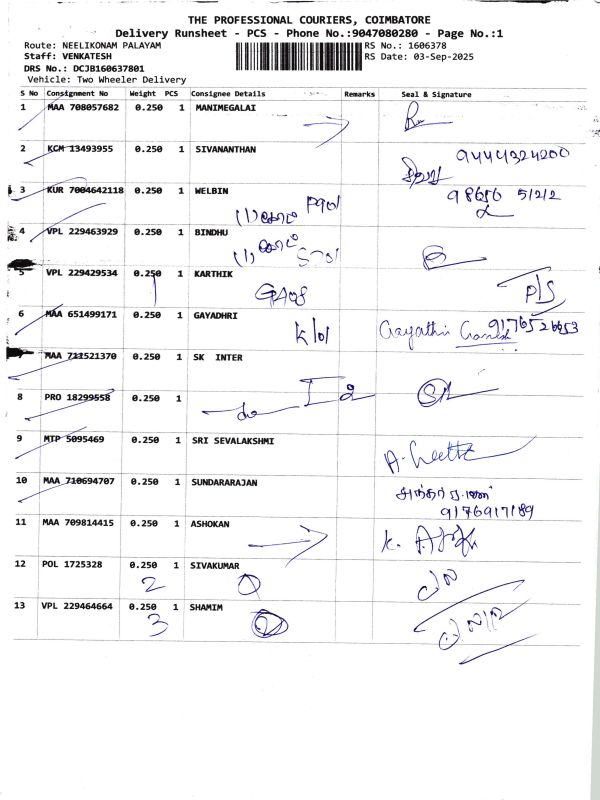 THE PROFESSIONAL COURIERS, COIMBATORE
Delivery Runsheet - PCS - Phone No.:9047080280 - Page No.:1
Route: NEELIKONAM PALAYAM
RS No.: 1606378
Staff: VENKATESH
RS Date: 03-Sep-2025
DRS No.: DCJB160637801
Vehicle: Two Wheeler Delivery
S No Consignment No Weight PCS Consignee Details Remarks Seal & Signature
1 MAA 708057682 0.250 1 MANIMEGALAI
2 KCM 13493955 0.250 1 SIVANANTHAN
9444324200
3 KUR 7004642118 0.250 1 WELBIN
98656 51212
4 VPL 229463929 0.250 1 BINDHU
5 VPL 229429534 0.250 1 KARTHIK
P/S
6 MAA 651499171 0.250 1 GAYADHRI
K 101 Gayathri 9176526653
7 MAA 711521370 0.250 1 SK INTER
8 PRO 18299558 0.250 1
9 MTP 5095469 0.250 1 SRI SEVALAKSHMI
10 MAA 710694707 0.250 1 SUNDARARAJAN
9176917189
11 MAA 709814415 0.250 1 ASHOKAN
12 POL 1725328 0.250 1 SIVAKUMAR
2
13 VPL 229464664 0.250 1 SHAMIM
3